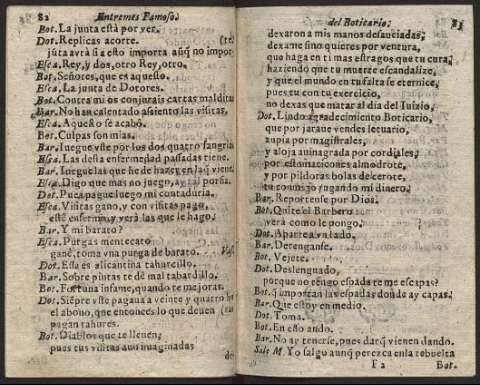 82 Entremes Famoso.
Bot. La junta està por ver.
Dot. Replicas acorte. (te.
justa avrà si a esto importa aũq̃ no impor
Esca. Rey, y dos, otro Rey, otro.
Bot. Señores, que es aquesto.
Esca. La junta de Dotores.
Bot. Contra mi os conjurais cartas malditas
Bar. No han calentado assiento las visitas.
Esca. Aquesto se acabò.
Bot. Culpas son mias.
Bar. Juegue vste por los dos quatro sangrias
Esca. Las desta enfermedad passadas tiene.
Bar. Juegue las que he de hazer en la que viene.
Esca. Digo que mas no juego, a tal porfia.
Dot. Pues pague luego mi contaduria.
Esca. Visitas gano, y con visitas pago,
estè enfermo, y verà las que le hago.
Bar. Y mi barato?
Esca. Purgas mentecato
ganè, toma vna purga de barato.
Dot. Essa es alicantina tahurcillo.
Bar. Sobre plutas te dè mal tabardillo.
Bot. Fortuna infame, quando te mejoras.
Dot. Siẽpre vste pagava a veinte y quatro
el abono, que entonces lo que deuen
pagan tahures.
Bot. Diablos que te lleuen,
pues tus visitas aun imaginadas
del Boticario. 83
dexaron a mis manos desauciadas,
dexame sino quieres por ventura,
que haga en ti mas estragos que tu cura,
haziendo que tu muerte escandalize,
y que el mundo en tu falta se eternice,
pues tu con tu exercicio,
no dexas que matar al dia del Iuizio,
Dot. Lindo agradecimiento Boticario,
que por jaraue vendes letuario,
aupia por magistrales,
y aloja auinagrada por cordiales,
por estomaticones almodrote,
y por pildoras bolas de cerote,
tu conmigo jugando mi dinero.
Bar. Reportense por Dios.
Bot. Quite el Barbero
verà como le pongo.
Dot. Aparte a vn lado.
Bar. Detenganse.
Bot. Vejete.
Dot. Deslenguado,
porque no tengo espada te me escapas?
Bot. q̃ importan las espadas donde ay capas.
Bar. Que estoy en medio.
Dot. Toma.
Bot. En esso ando.
Bar. No ay tenerse, pues darã vienen dando.
Sale M. Yo salgo aunq̃ perezca en la rebuelta
F 2 Bot.